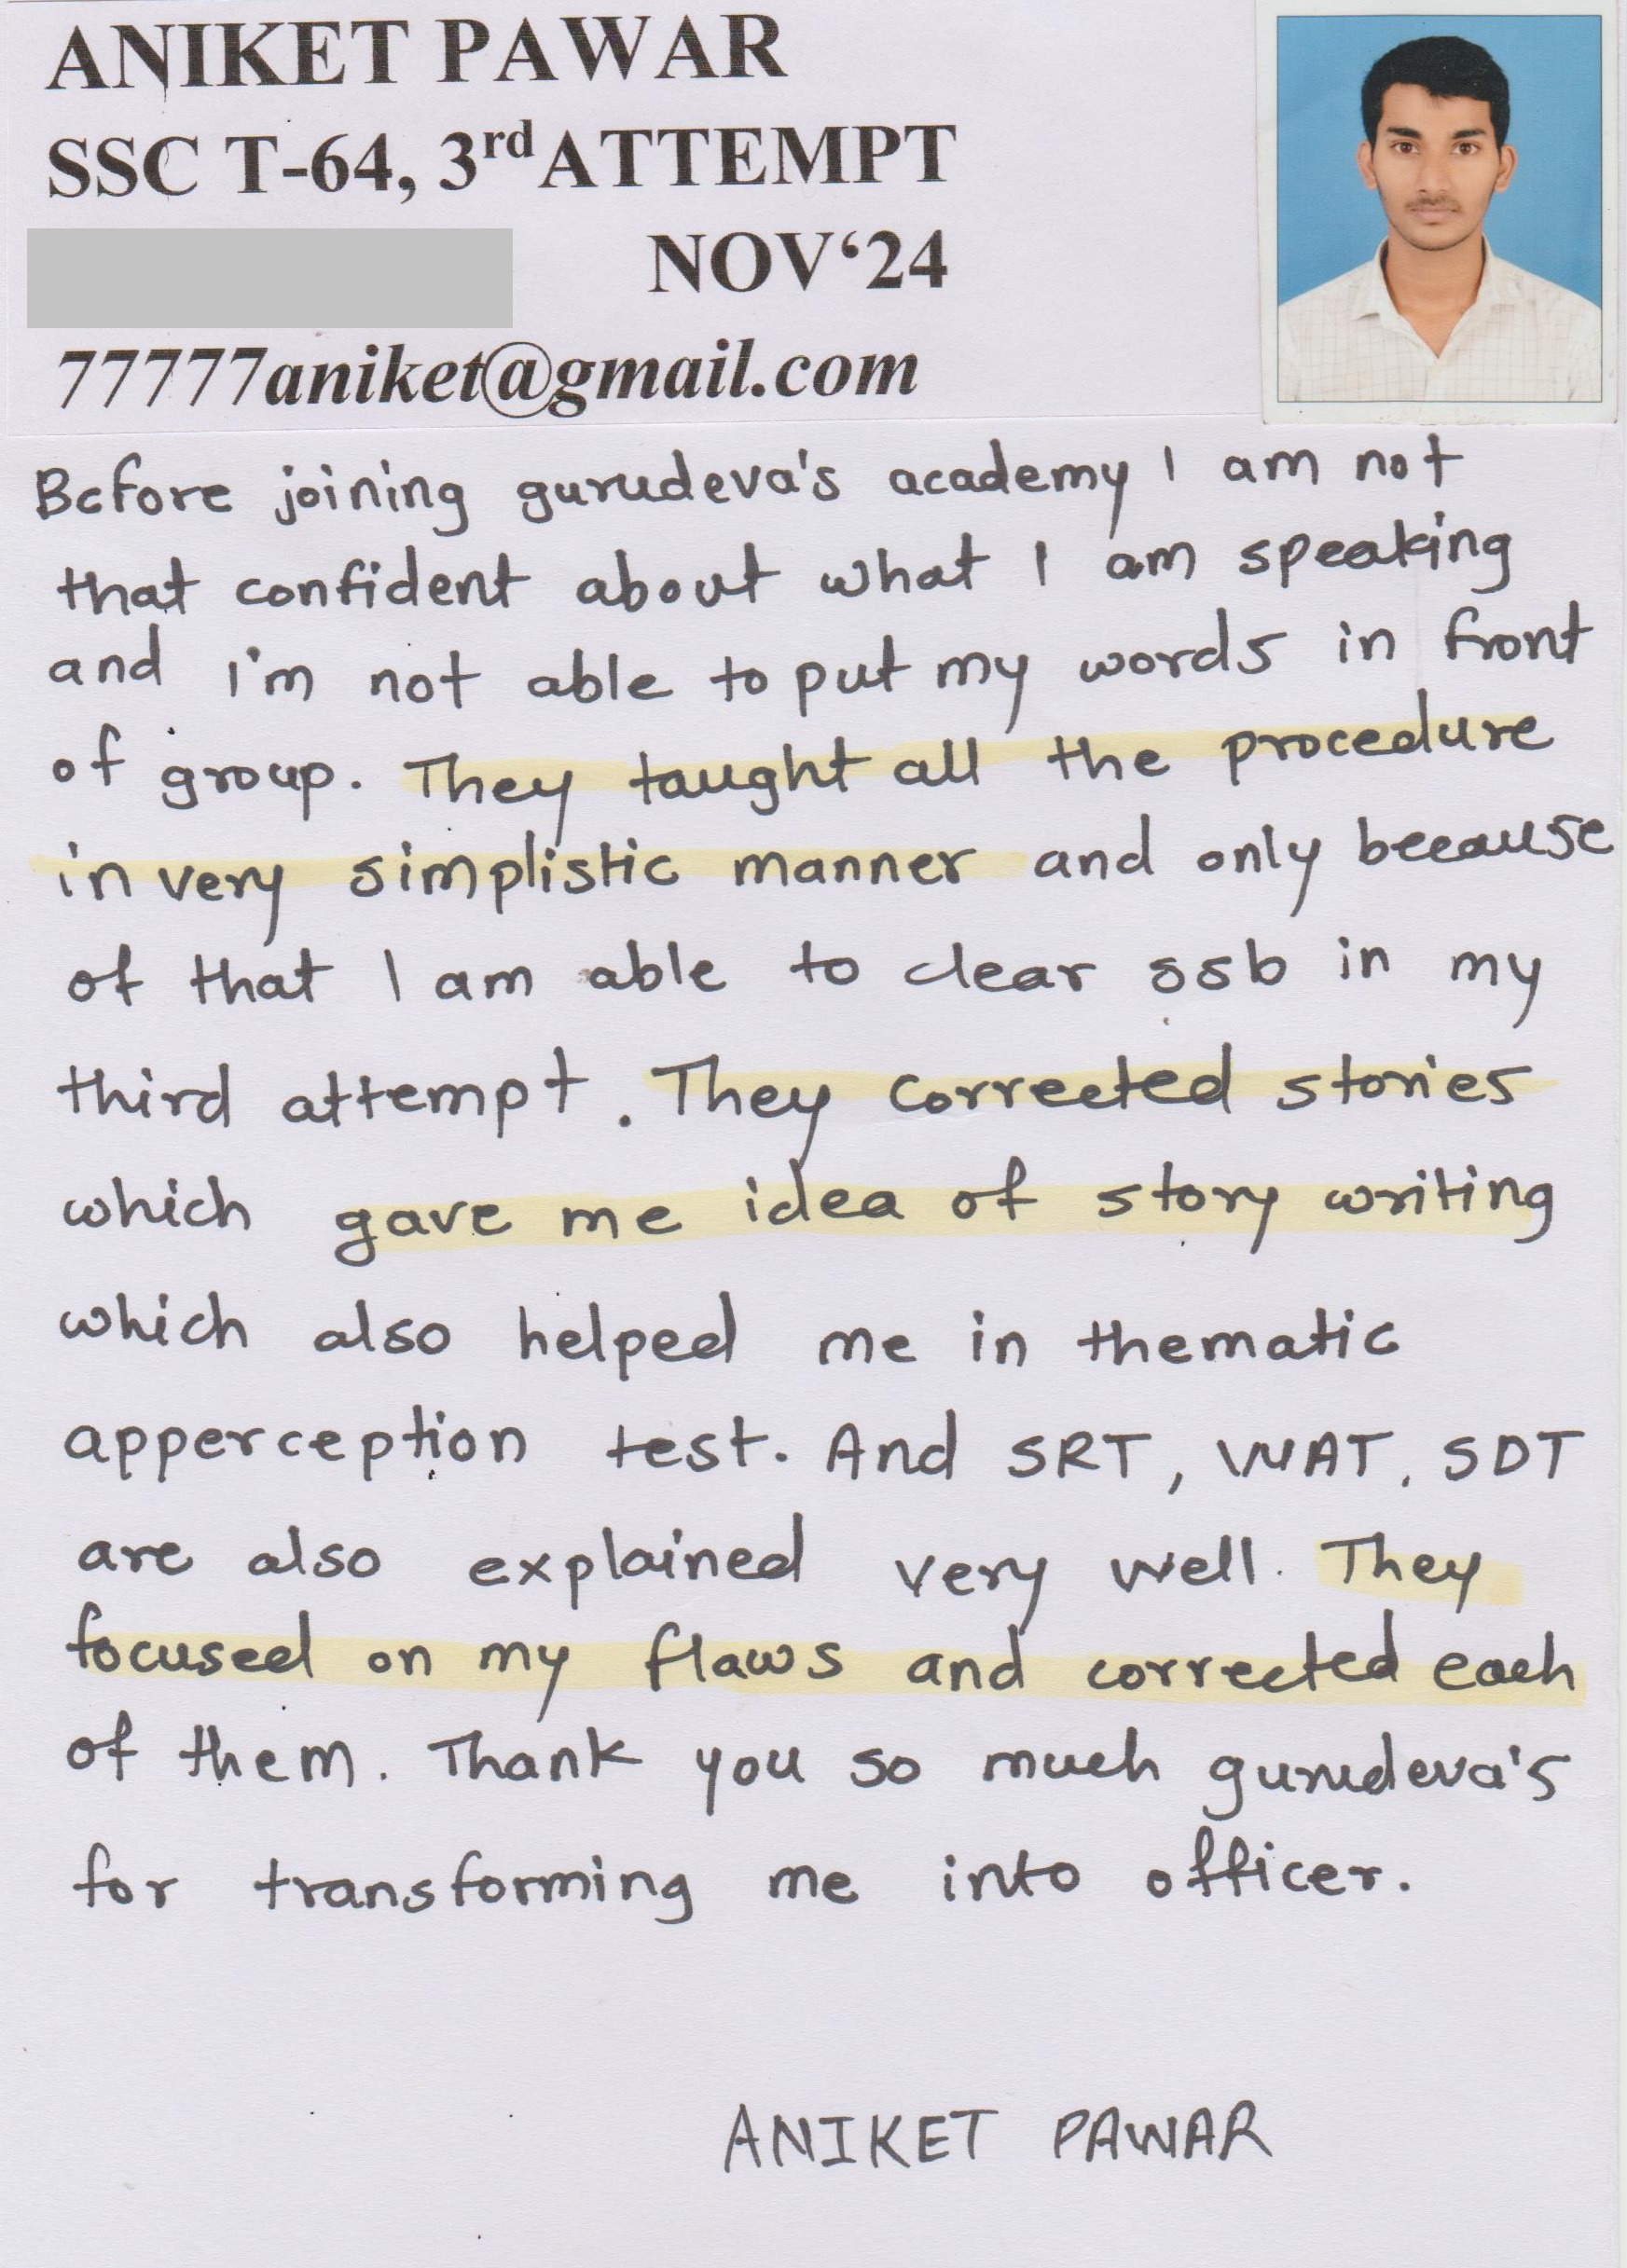 ANIKET PAWAR
SSC T-64, 3rd ATTEMPT
NOV‘24
77777aniket@gmail.com
Before joining gurudeva's academy I am not
that confident about what I am speaking
and i'm not able to put my words in front
of group. They taught all the procedure
in very simplistic manner and only because
of that I am able to clear ssb in my
third attempt. They corrected stories
which gave me idea of story writing
which also helped me in thematic
apperception test. And SRT, WAT, SDT
are also explained very well. They
focused on my flaws and corrected each
of them. Thank you so much gurudeva's
for transforming me into officer.
ANIKET PAWAR